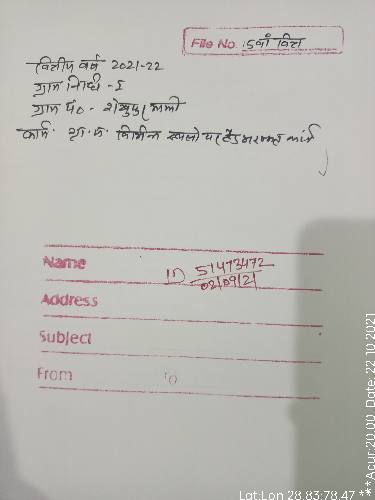 File No. :5वाँ वित्त
वित्तीय वर्ष 2021-22
ग्राम निधि - 6
ग्राम पं० -
कार्य - ग्रा. पं. विभिन्न स्थलो पर हैंडपम्प मरम्मत कार्य
Name
ID 51473472
02/09/21
Address
Subject
From To
Lat:Lon 28.83:78.47 ***Acur:20.00 Date: 22.10.2021